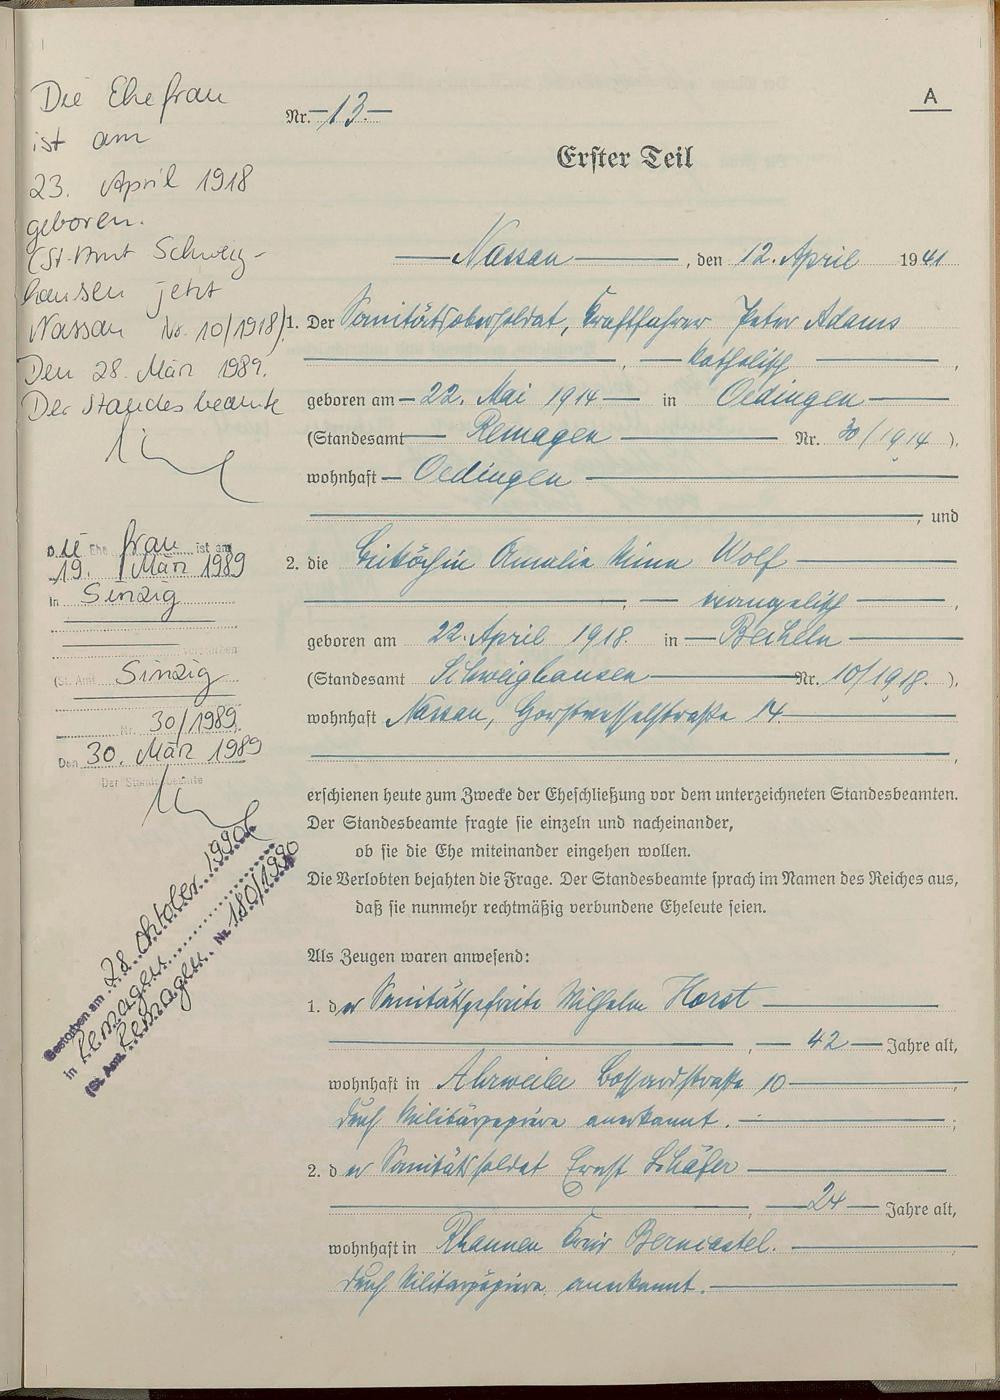 A
Nr. 13.
Erster Teil
Nassau, den 12. April 1941
1. Der Sanitätsobersoldat, Kraftfahrer Peter Adams
, katholisch,
geboren am 22. Mai 1914 in Oedingen
(Standesamt Remagen Nr. 30/1914),
wohnhaft Oedingen
, und
2. die Beiköchin Amalie Minna Wolf
, evangelisch,
geboren am 22. April 1918. in Becheln
(Standesamt Schweighausen Nr. 10/1918.),
wohnhaft Nassau, Horstwesselstraße 14
,
erschienen heute zum Zwecke der Eheschließung vor dem unterzeichneten Standesbeamten.
Der Standesbeamte fragte sie einzeln und nacheinander,
ob sie die Ehe miteinander eingehen wollen.
Die Verlobten bejahten die Frage. Der Standesbeamte sprach im Namen des Reiches aus,
daß sie nunmehr rechtmäßig verbundene Eheleute seien.
Als Zeugen waren anwesend:
1. der Sanitätsgefreite Wilhelm Horst
, 42 Jahre alt,
wohnhaft in Ahrweiler Bossardstraße 10
durch Militärpapiere anerkannt. ;
2. der Sanitätssoldat Ernst Schäfer
, 24 Jahre alt,
wohnhaft in Rhaunen Kreis Berncastel.
durch Militärpapiere anerkannt.
Die Ehefrau
ist am
23. April 1918
geboren.
(St.Amt Schweig-
hausen jetzt
Nassau Nr. 10/1918).
Den 28. März 1989.
Der Standesbeamte
Die Ehefrau ist am
19. März 1989
in Sinzig
verstorben
(St. Amt Sinzig
Nr. 30/1989.
Den 30. März 1989
Der Standesbeamte
Gestorben am 28. Oktober 1990
in Remagen
(St. Amt Remagen Nr. 180/1990